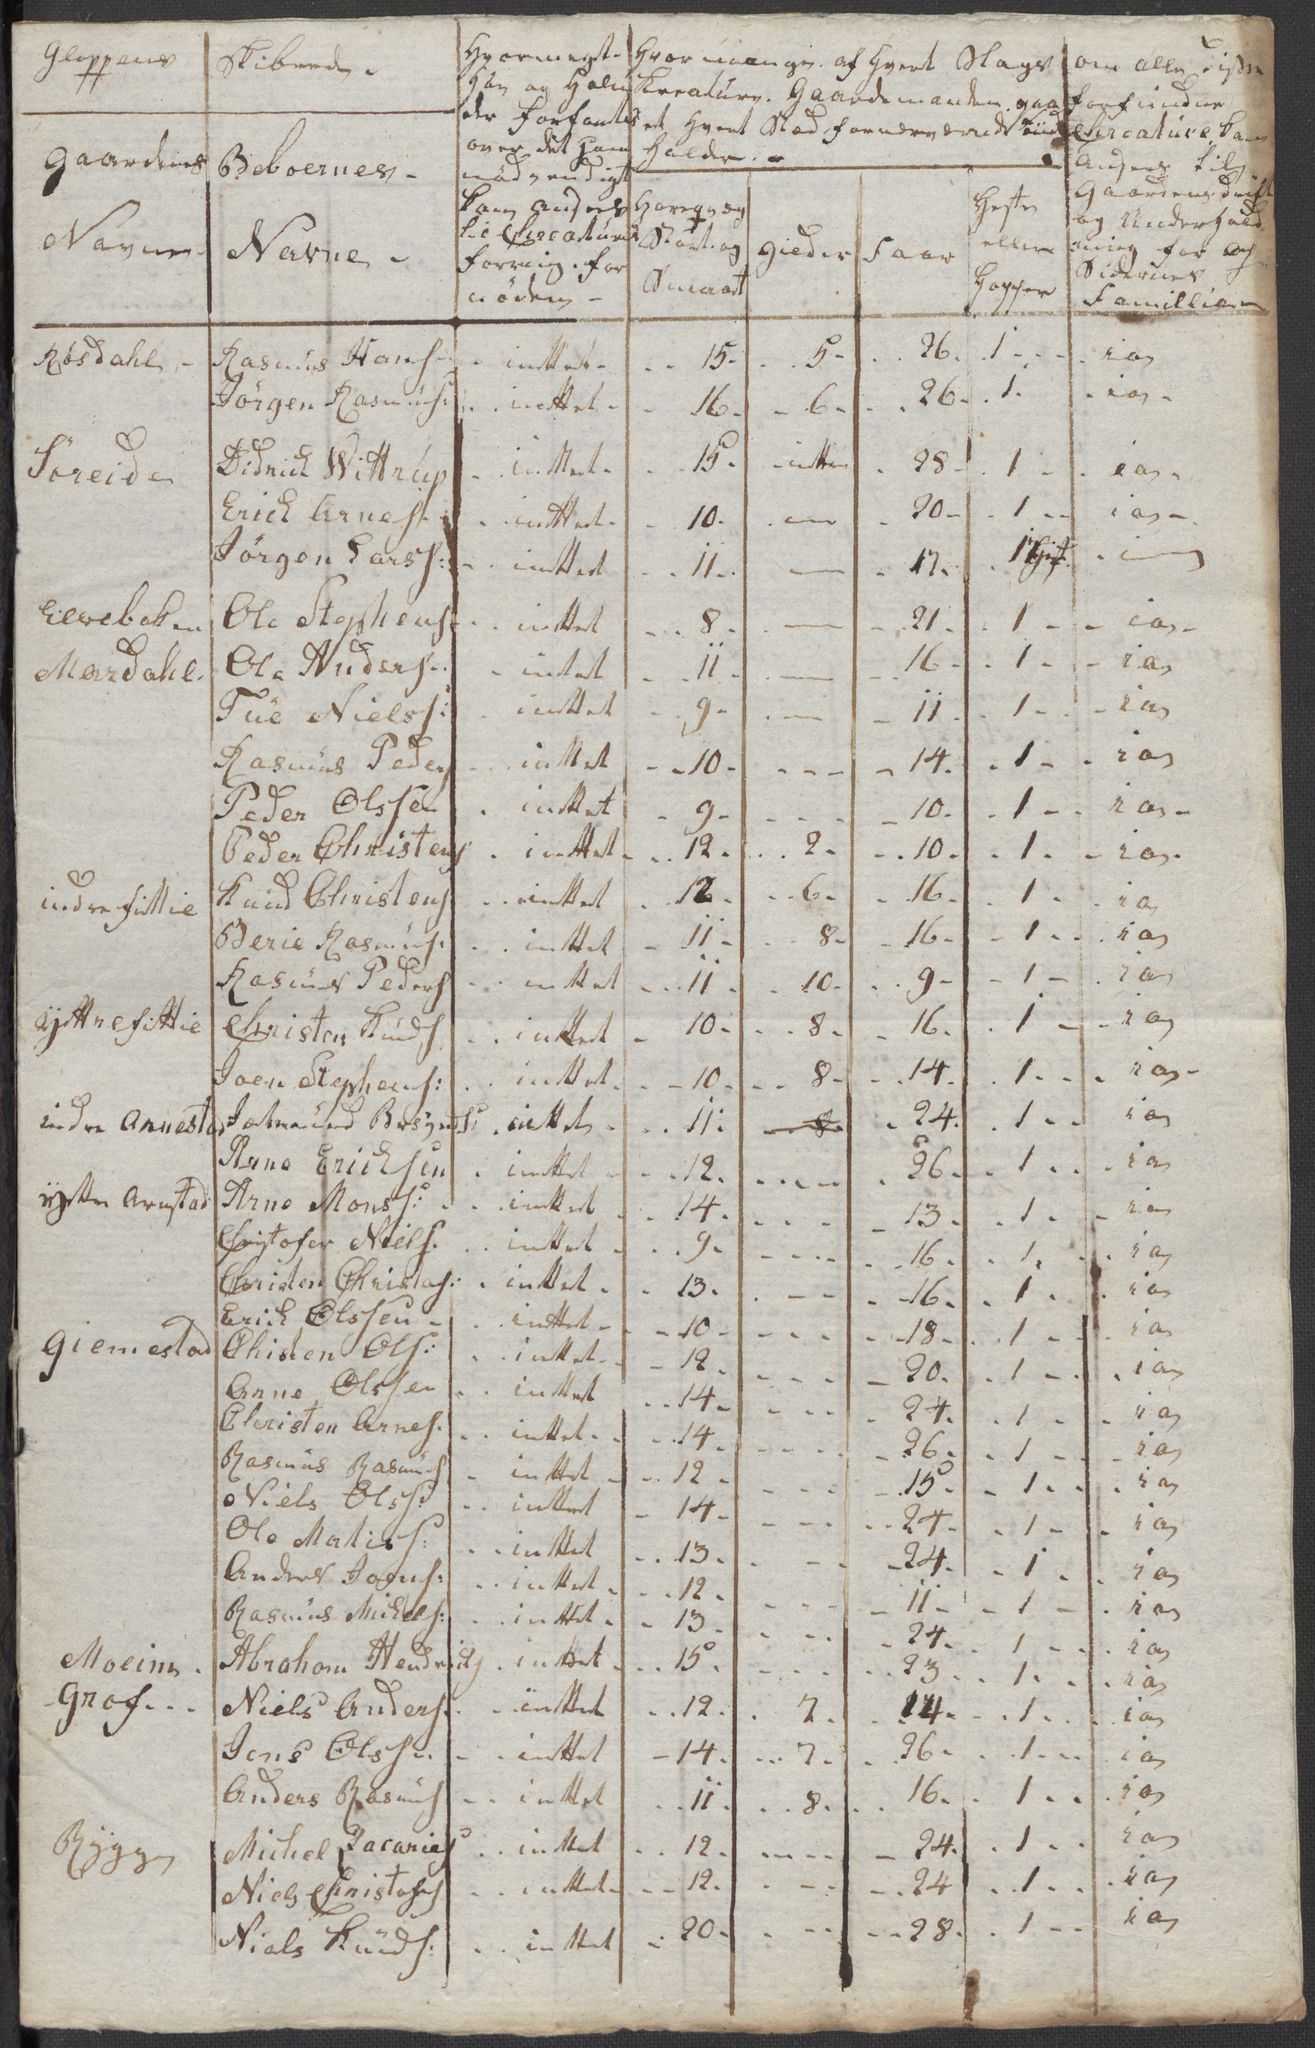 Gloppens Skibrede
Gaardenes Navne
Beboernes Navne
Hvormeget Høy og Halm der forfindes over det Ham nødvendigt kan ansees til Creaturs foering for nøden
Hvor mange af hvert Slags Kreature Gaardemanden paa et hvert Stæd fornærværende Tiid holder
Hornqvæg Stort og Smaat
Gieder
Faar
Heste eller Hopper
om alle disse forefundne Creature kan ansees til Gaardens drift og Underholdning for og Sidernes Famillie
Røsdahl - Rasmus Hans: intet 15 5 26 1 ja
Jørgen Rasmus: intet 16 6 26 1 ja
Søreide Didrich Wittrup intet 15 intet 28 1 ja
Erich Arnes: intet 10 — 20 1 ja
Jørgen Larss: intet 11 — 17 1 —
Eilvebaken Ole Stephens: intet 8 — 21 1 ja
Mardahl Ole Anders: intet 11 — 16 1 ja
Tue Nielss: intet 9 — 11 1 ja
Rasmus Peders intet 10 - - - 14 1 ja
Peder Olssen intet 9 - - - 10 1 ja
Peder Christens intet 12 2 10 1 ja
indre fittie Knud Christens intet 12 6 16 1 ja
Berie Rasmus: intet 11 8 16 1 ja
Rasmus Peders intet 11 10 9 1 ja
yttre fittie Christen Knuds intet 10 8 16 1 ja
Joen Stephens: intet 10 8 14 1 ja
indre Annestad Jetmund Brynds: intet 11 8 24 1 ja
Arne Erichsen intet 12 - - - 26 1 ja
yttre Arnestad Arne Monss: intet 14 - - - 13 1 ja
Christofer Niels: intet 9 - - - 16 1 ja
Christen Christens: intet 13 - - - 16 1 ja
Erich Olssen intet 10 - - - 18 1 ja
Giemestad Christen Ols: intet 12 - - - 20 1 ja
Arne Olssen intet 14 - - - 24 1 ja
Christen Arnes: intet 14 - - - 26 1 ja
Rasmus Rasmus intet 12 - - - 15 1 ja
Niels Olss: intet 14 - - - 24 1 ja
Ole Matis: intet 13 - - - 24 1 ja
Anders Joens: intet 12 - - - 11 1 ja
Rasmus Michels: intet 13 - - - 24 1 ja
Moeinn Abraham Hendrichs intet 15 - - - 23 1 ja
Grof Niels Anders: intet 12 7 14 1 ja
Jens Olss: intet 14 7 26 1 ja
Anders Rasmus intet 11 8 16 1 ja
Rygg Michel Zacarias intet 12 - - - 24 1 ja
Niels Christofs intet 12 - - - 24 1 ja
Niels Knuds: intet 20 - - - 28 1 ja